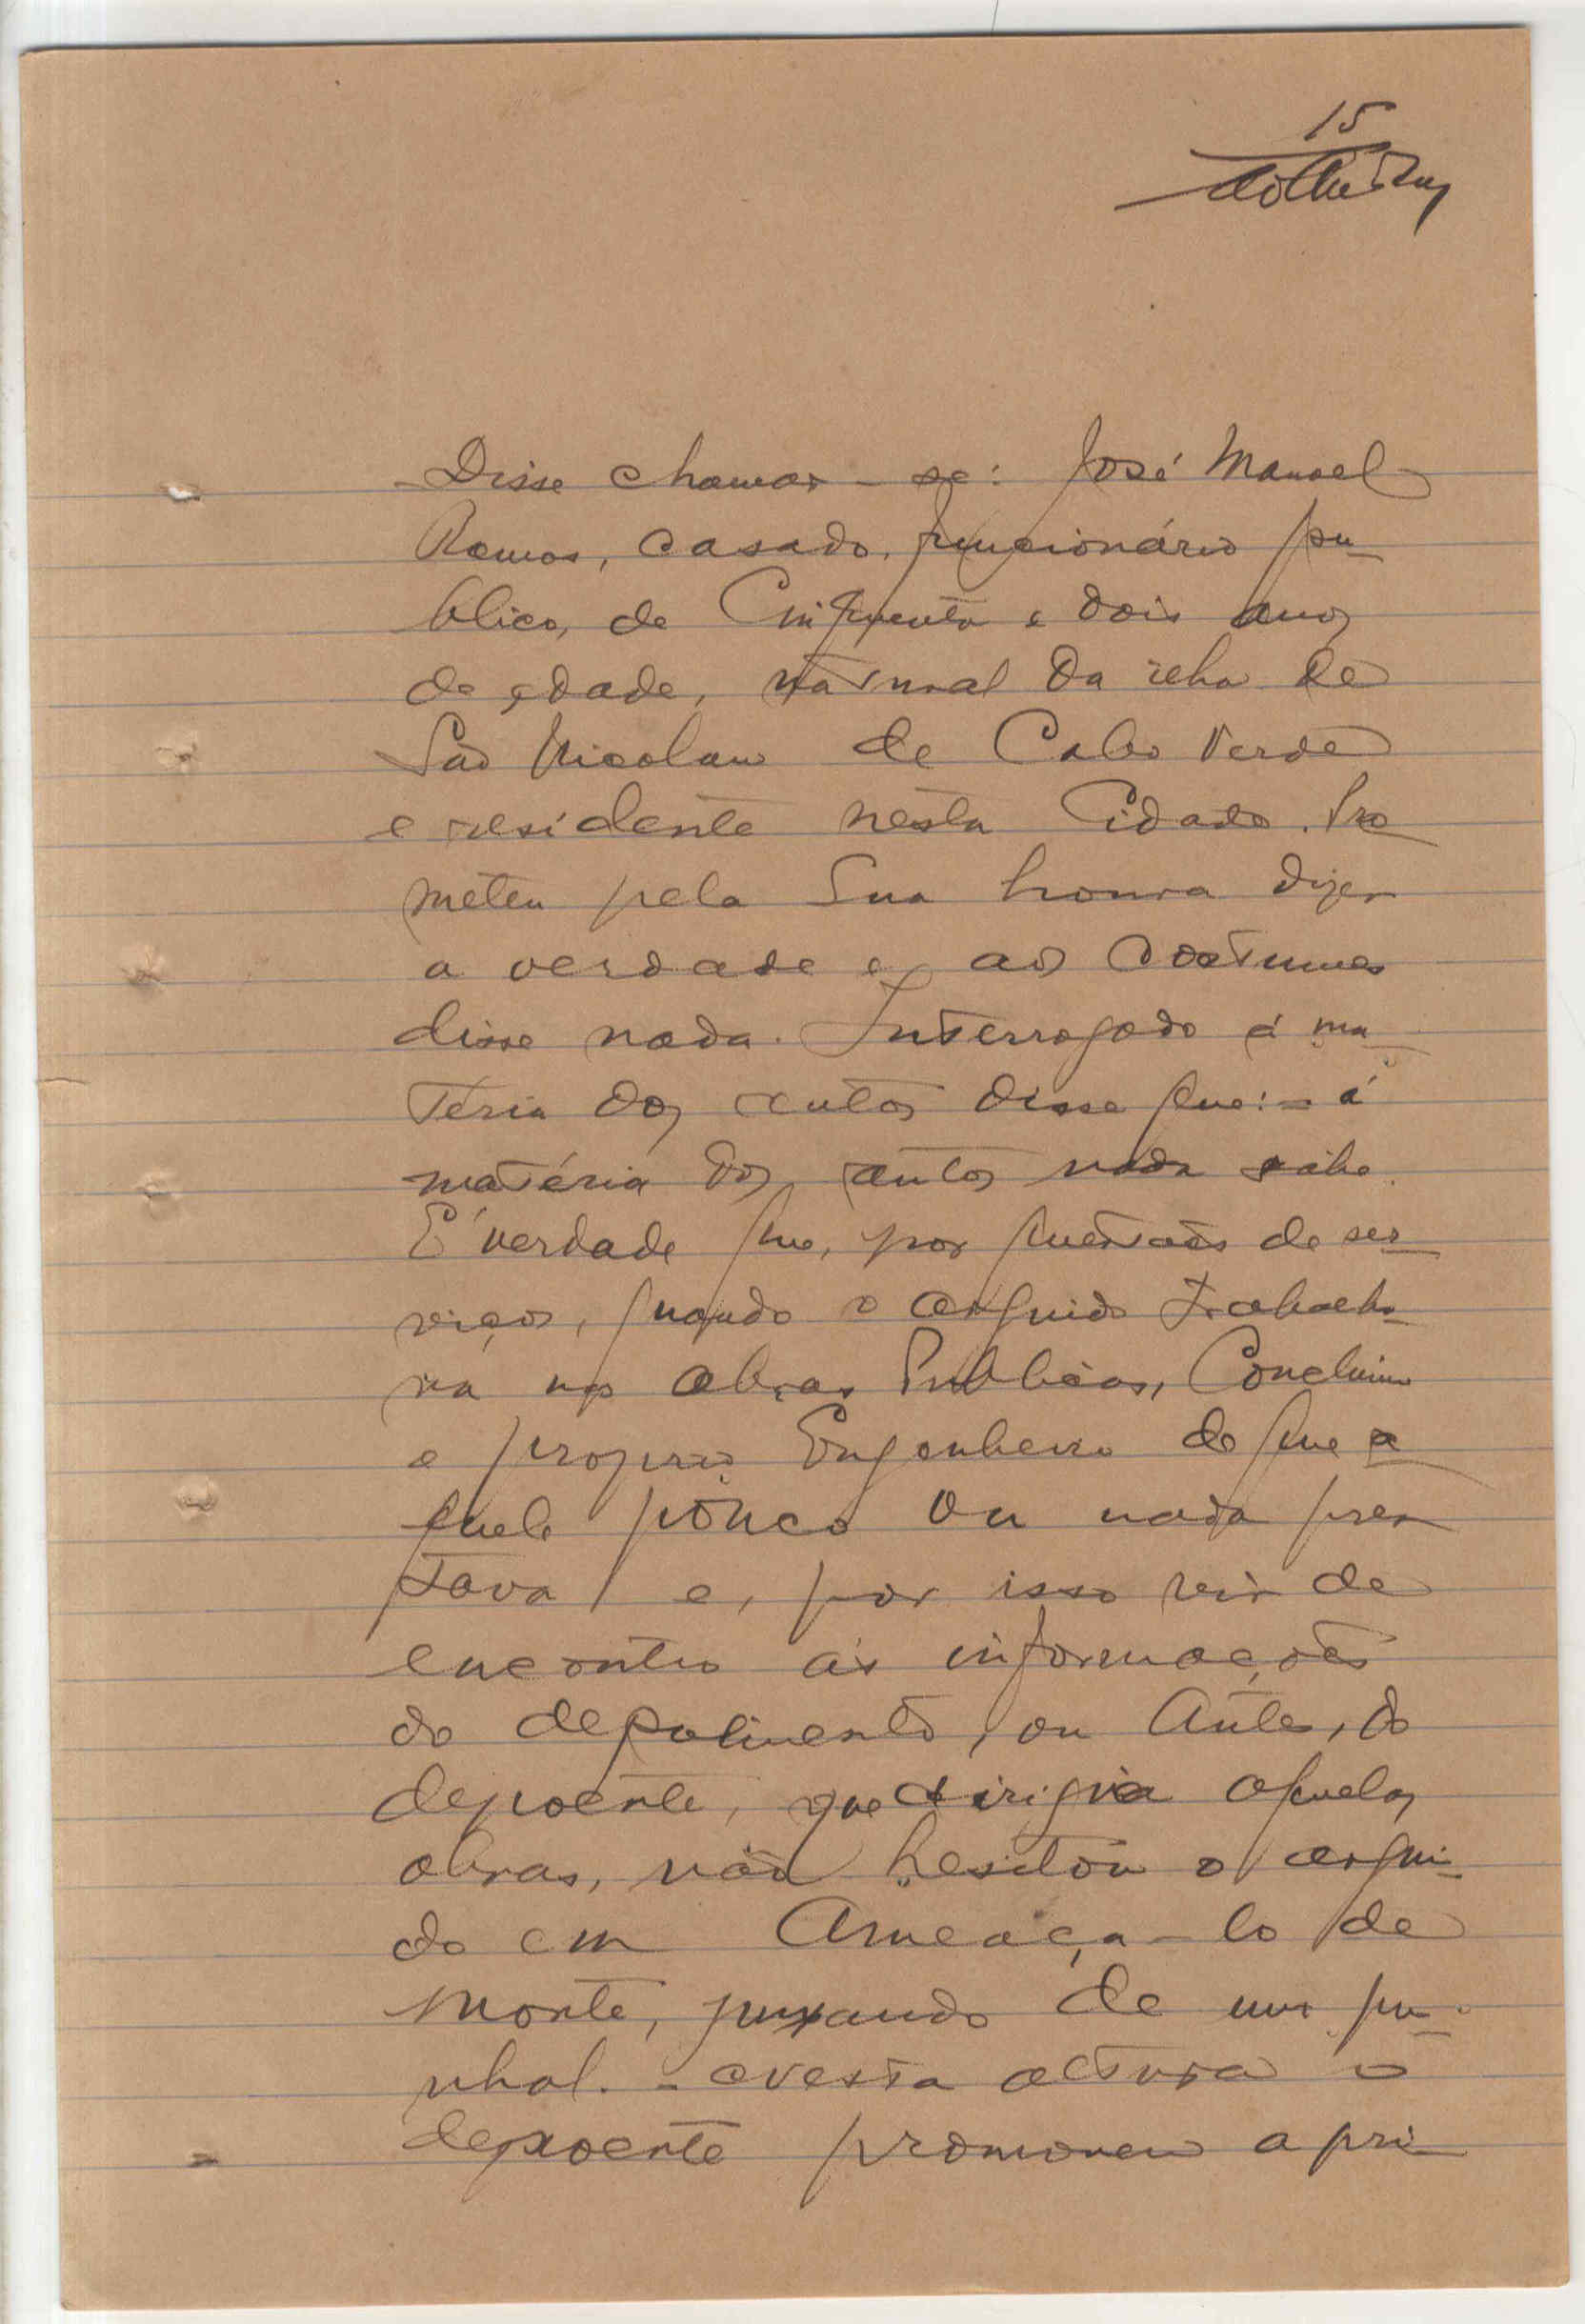 15
Disse chamar-se: José Manoel
Ramos, casado, funcionário pu-
blico, de Cinquenta e dois anos
de edade, natural da ilha de
São Nicolau de Cabo Verde
e residente nesta Cidade. Pro-
meteu pela Sua honra dizer
a verdade e aos costumes
disse nada. Interrogado á ma-
téria dos autos disse que:- á
matéria dos autos nada sabe.
É verdade que, por questões de ser-
viços, quando o arguido trabalha-
va nas obras Publicas, Concluiu
o proprio Engenheiro de que a-
quele pouco ou nada pres-
tava e, por isso vir de
encontro ás informações
do depoimento, ou Antes, do
depoente, que dirigia aquelas
obras, não hesitou o argui-
do em Ameaça-lo de
morte, puxando de um pu-
nhal. - nesta altura o
depoente promoveu a pri-